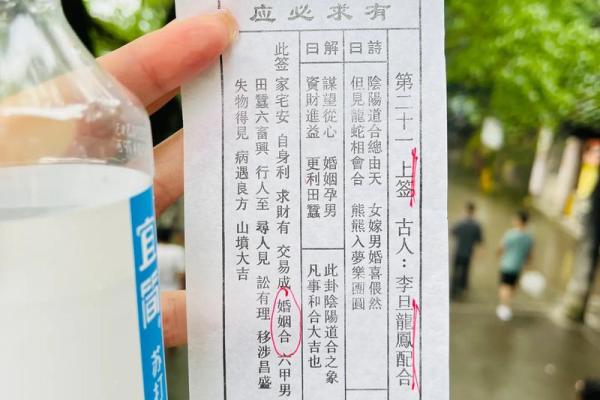 有求必应
第二十一 上签 古人：李旦龍鳳配合
詩曰
陰陽道合總由天 女嫁男婚喜偎然
但見龍蛇相會合 熊熊入夢樂團圓
解曰
謀望從心 婚姻孕男
資財進益 更利田蠶
此卦陰陽道合之象
凡事和合大吉也
此签 家宅安 自身利 求財有 交易成 婚姻合 六甲男
田蠶六畜興 行人至 尋人見 訟有理 移涉昌盛
失物得見 病遇良方 山墳大吉
宜简
苏打